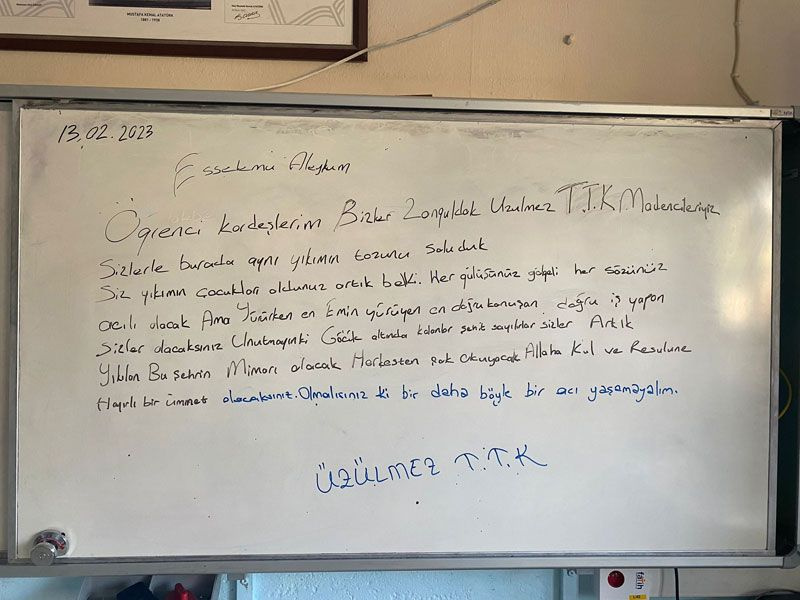 MUSTAFA KEMAL ATATÜRK
1881 - 1938
13.02.2023
Esselemü Aleykum
Öğrenci kardeşlerim Bizler Zonguldak Üzülmez T.T.K Madencileriyiz
Sizlerle burada aynı yıkımın tozunu soluduk
Siz yıkımın çocukları oldunuz artık belki. Her gülüşünüz gölgeli her sözünüz
acılı olacak Ama Yürürken en Emin yürüyen en doğru konuşan doğru iş yapan
Sizler olacaksınız Unutmayınki Göçük altında kalanlar şehit sayılırlar sizler Artık
Yıkılan Bu şehrin Mimarı olacak Herkesten çok okuyacak Allaha Kul ve Resulune
Hayırlı bir ümmet olacaksınız. Olmalısınız ki bir daha böyle bir acı yaşamayalım.
ÜZÜLMEZ T.T.K
fatih